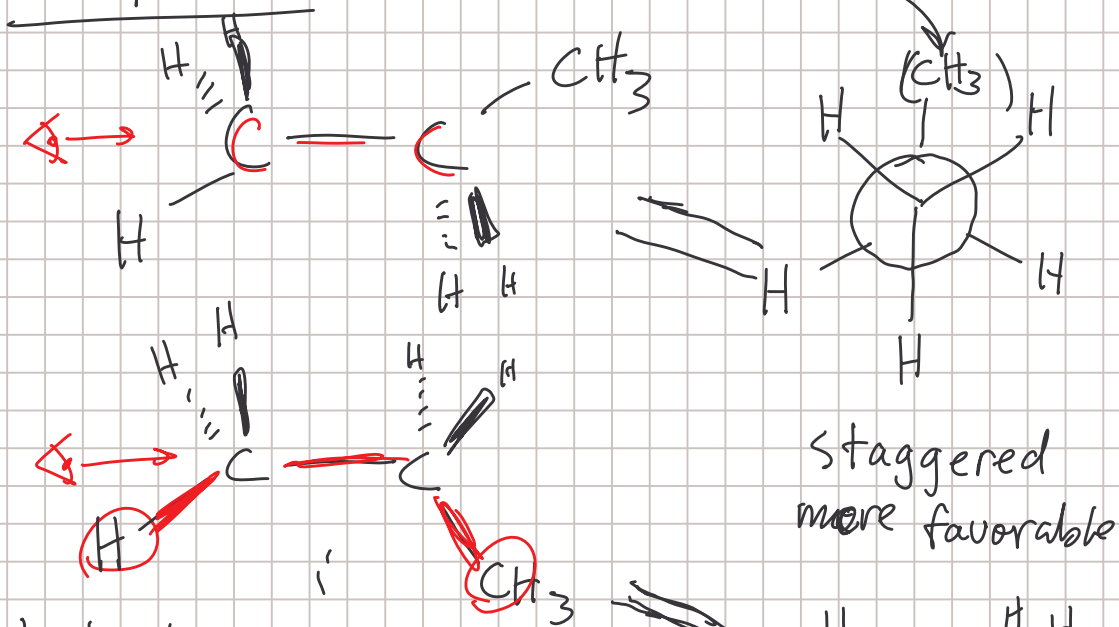 H
H
C
C
CH3
H
H
H
(CH3)
H
H
H
H
H
H
H
C
H
H
C
H
CH3
staggered
more favorable
H
H
H